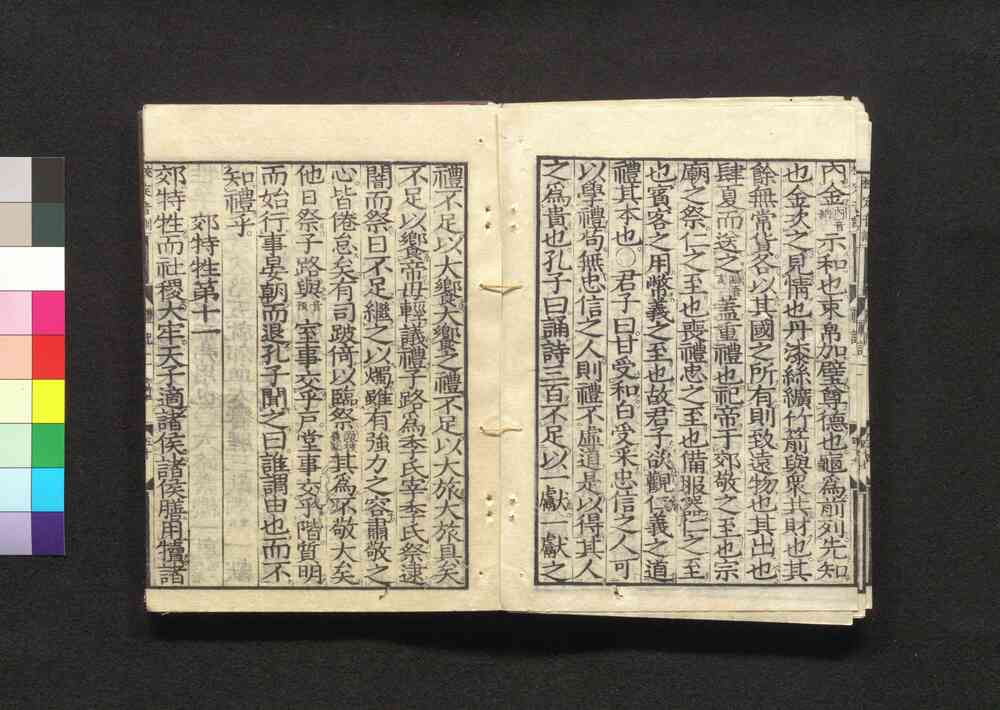 內金示和也束帛加璧尊德也龜爲前列先知
也金次之見情也丹漆絲纊竹箭與衆共財也其
餘無常貨各以其國之所有則致遠物也其出也
肆夏而送之蓋重禮也祀帝于郊敬之至也宗
廟之祭仁之至也喪禮忠之至也備服器仁之至
也賓客之用幣義之至也故君子欲觀仁義之道
禮其本也○君子曰甘受和白受采忠信之人可
以學禮苟無忠信之人則禮不虛道是以得其人
之爲貴也孔子曰誦詩三百不足以一獻一獻之
禮不足以大饗大饗之禮不足以大旅大旅具矣
不足以饗帝毋輕議禮子路爲季氏宰季氏祭逮
闇而祭日不足繼之以燭雖有強力之容肅敬之
心皆倦怠矣有司跛倚以臨祭其爲不敬大矣
他日祭子路與室事交乎戶堂事交乎階質明
而始行事晏朝而退孔子聞之曰誰謂由也而不
知禮乎
郊特牲第十一
郊特牲而社稷大牢天子適諸侯諸侯膳用犢諸